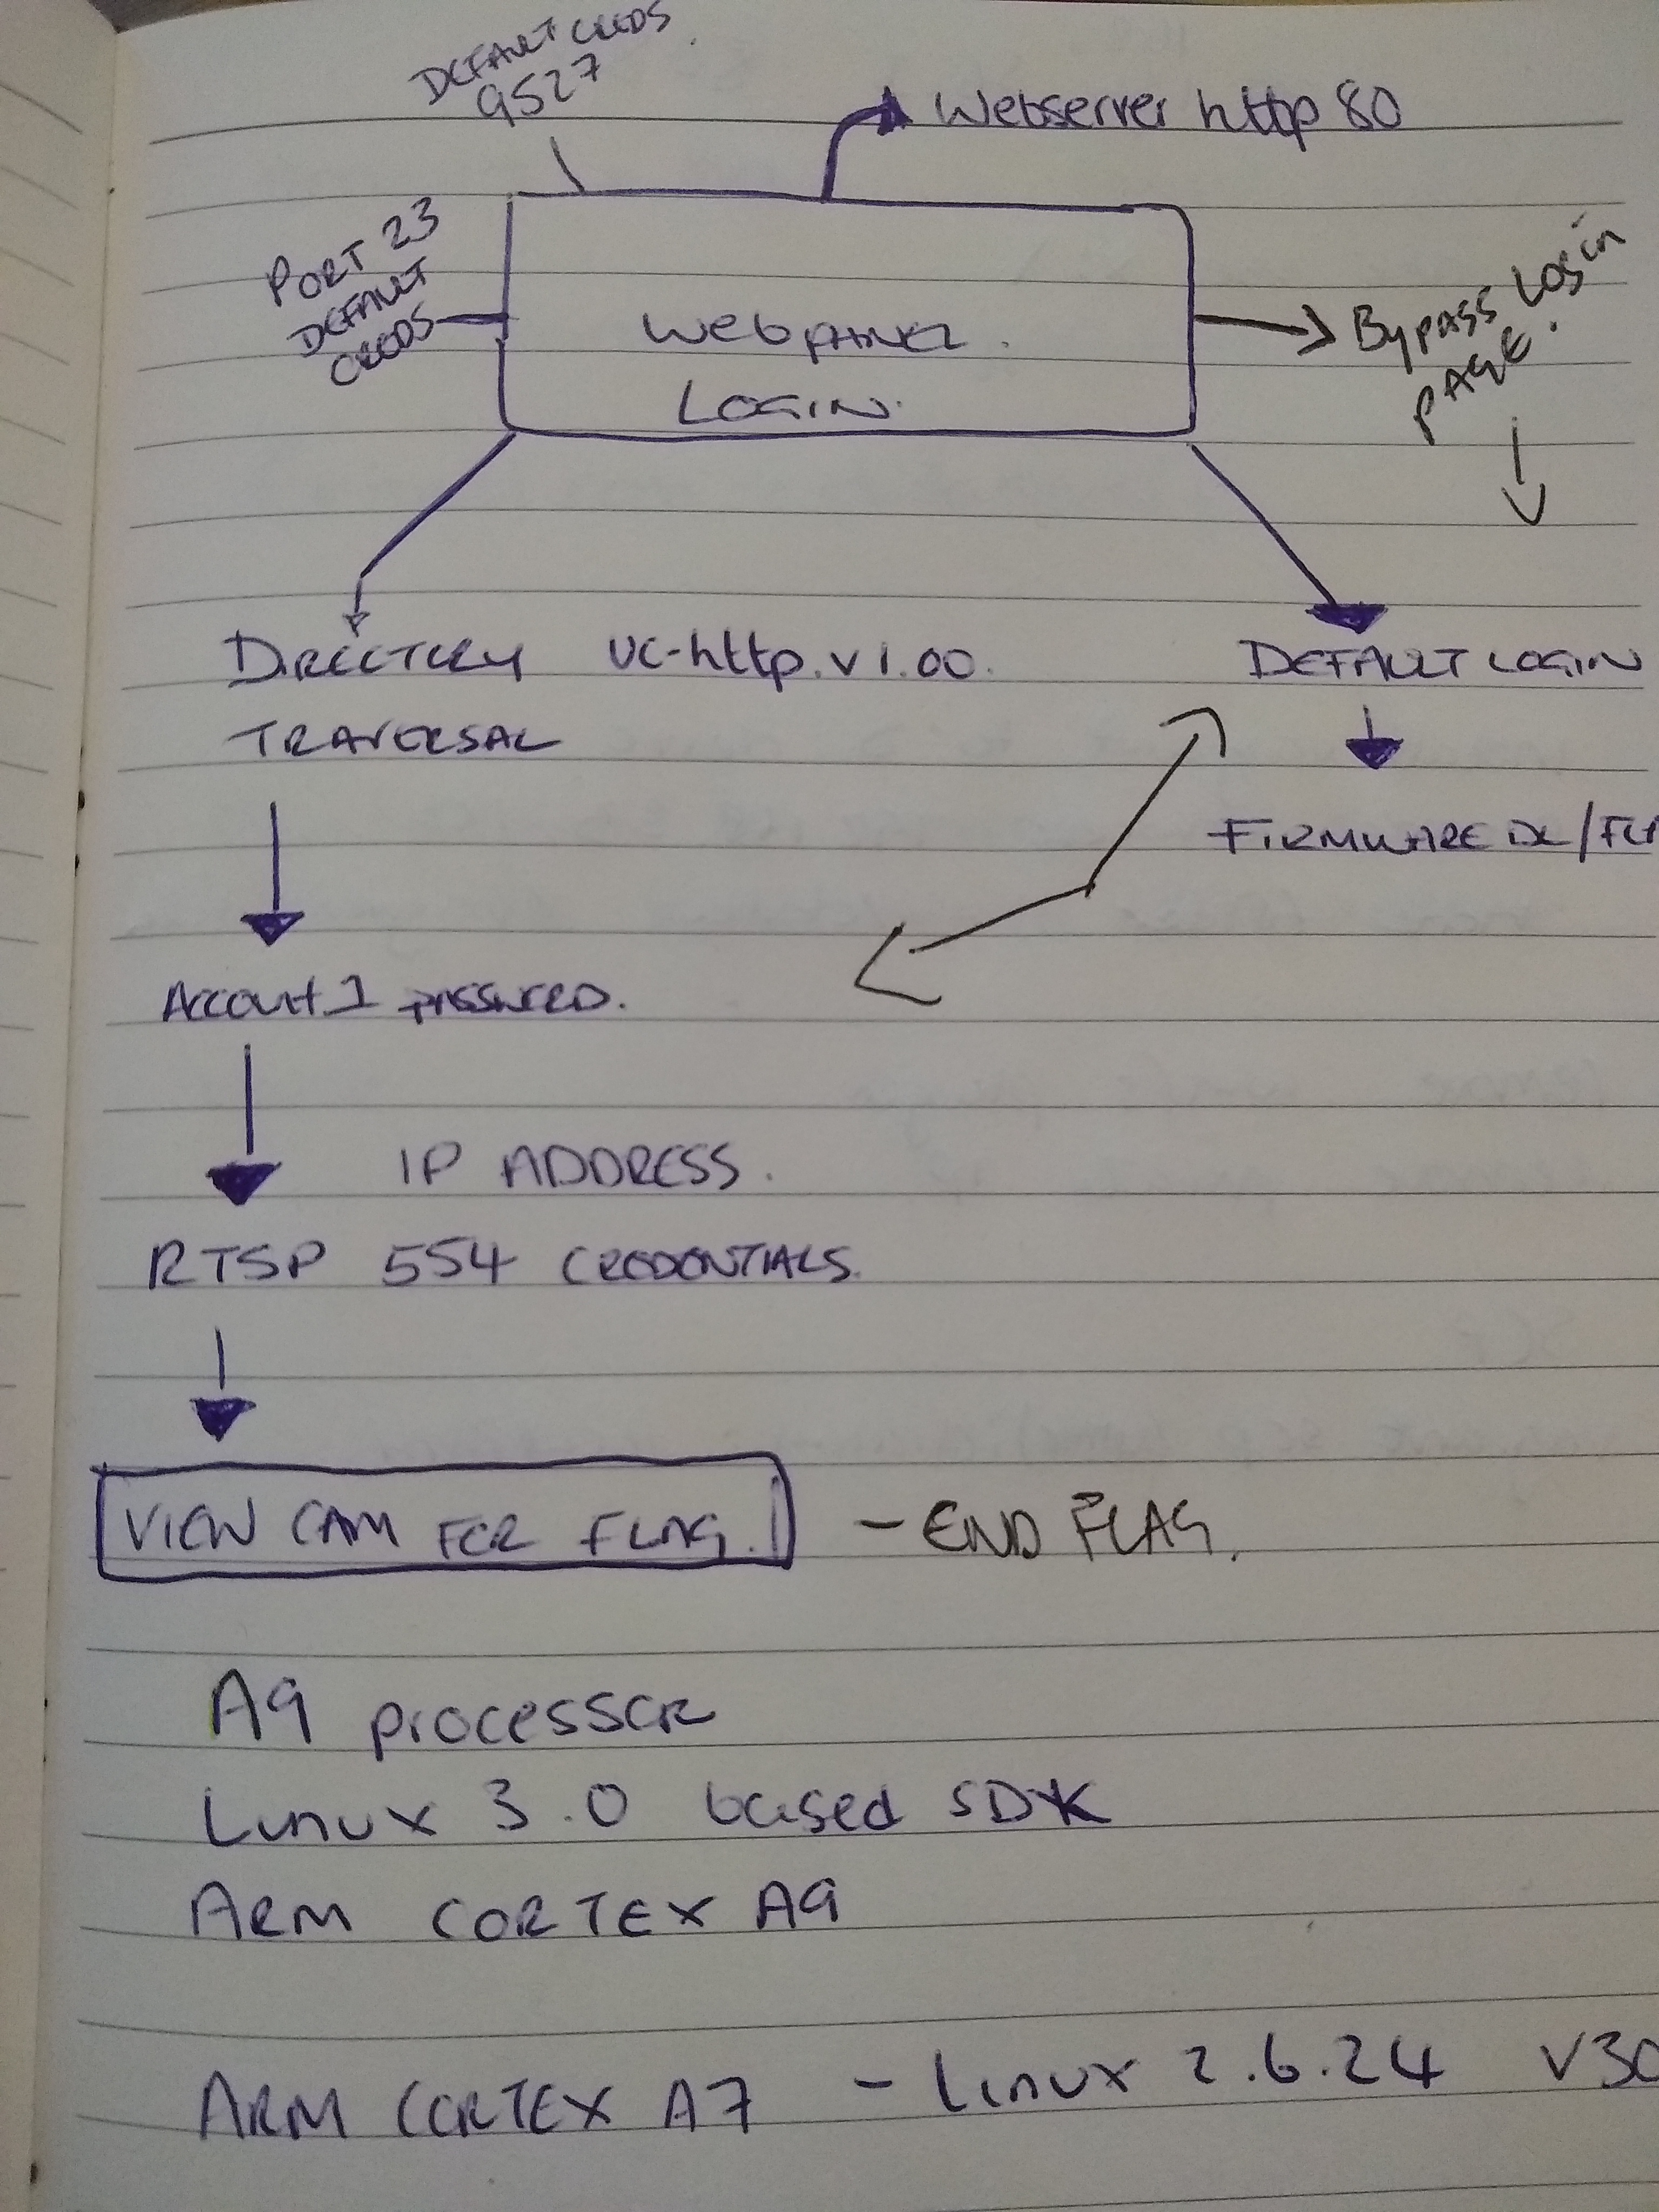 DEFAULT CREDS.
9527
Webserver http 80
PORT 23
DEFAULT
CREDS
WEB PANEL.
LOGIN.
BYPASS LOGIN
PAGE.
DIRECTORY UC-http.v1.00.
TRAVERSAL
DEFAULT LOGIN
FIRMWARE DL/
Account1 PASSWORD.
IP ADDRESS.
RTSP 554 CREDENTIALS.
VIEW CAM FOR FLAG. - END FLAG.
A9 PROCESSOR
Linux 3.0 based SDK
ARM CORTEX A9
ARM CORTEX A7 - Linux 2.6.24 V30